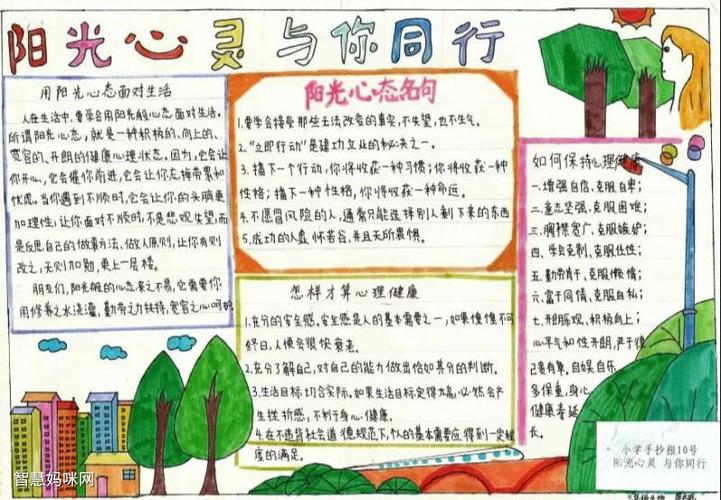 阳光心灵与你同行
用阳光心态面对生活
人在生活中,要学会用阳光般心态面对生活。
所谓阳光心态,就是一种积极的、向上的、
宽容的、开朗的健康心理状态。因为,它会让
你开心,它会催你前进,它会让你忘掉劳累和
忧虑。当你遇到不顺时,它会让你的头脑更
加理性;让你面对不顺时,不是悲观失望,而
是反思自己的做事方法、做人原则,让你有则
改之,无则加勉,更上一层楼。
朋友们,阳光般的心态来之不易,它需要你
用修养之水浇灌,勤劳之力扶持,宽容之心呵护
阳光心态名句
1.要学会接受那些无法改变的事实,不失望,也不生气。
2.“立即行动”是建功立业的秘诀之一。
3.播下一个行动,你将收获一种习惯;你将收获一种
性格;播下一种性格,你将收获一种命运。
4.不愿冒风险的人,通常只能选择别人剩下来的东西
5.成功的人虚怀若谷,并且无所畏惧。
怎样才算心理健康
1.充分的安全感。安全感是人的基本需要之一,如果惶惶不可
终日,人便会很快衰老。
2.充分了解自己,对自己的能力做出恰如其分的判断。
3.生活目标切合实际。如果生活目标定得太高,必然会产
生挫折感,不利于身心健康。
4.在不违背社会道德规范下,个人的基本需要应得到一定程
度的满足。
如何保持心理健康
一.增强自信、克服自卑;
二.意志坚强、克服困难;
三.胸襟宽广、克服嫉妒;
四、学会克制、克服任性;
五.勤劳肯干、克服懒惰;
六.富于同情、克服自私;
七.开朗乐观、积极向上;
心平气和性开朗,严于律
己责有罩。自娱自乐
多保重,身心
健康寿延
长。
小学手抄报10号
阳光心灵 与你同行
智慧妈咪网